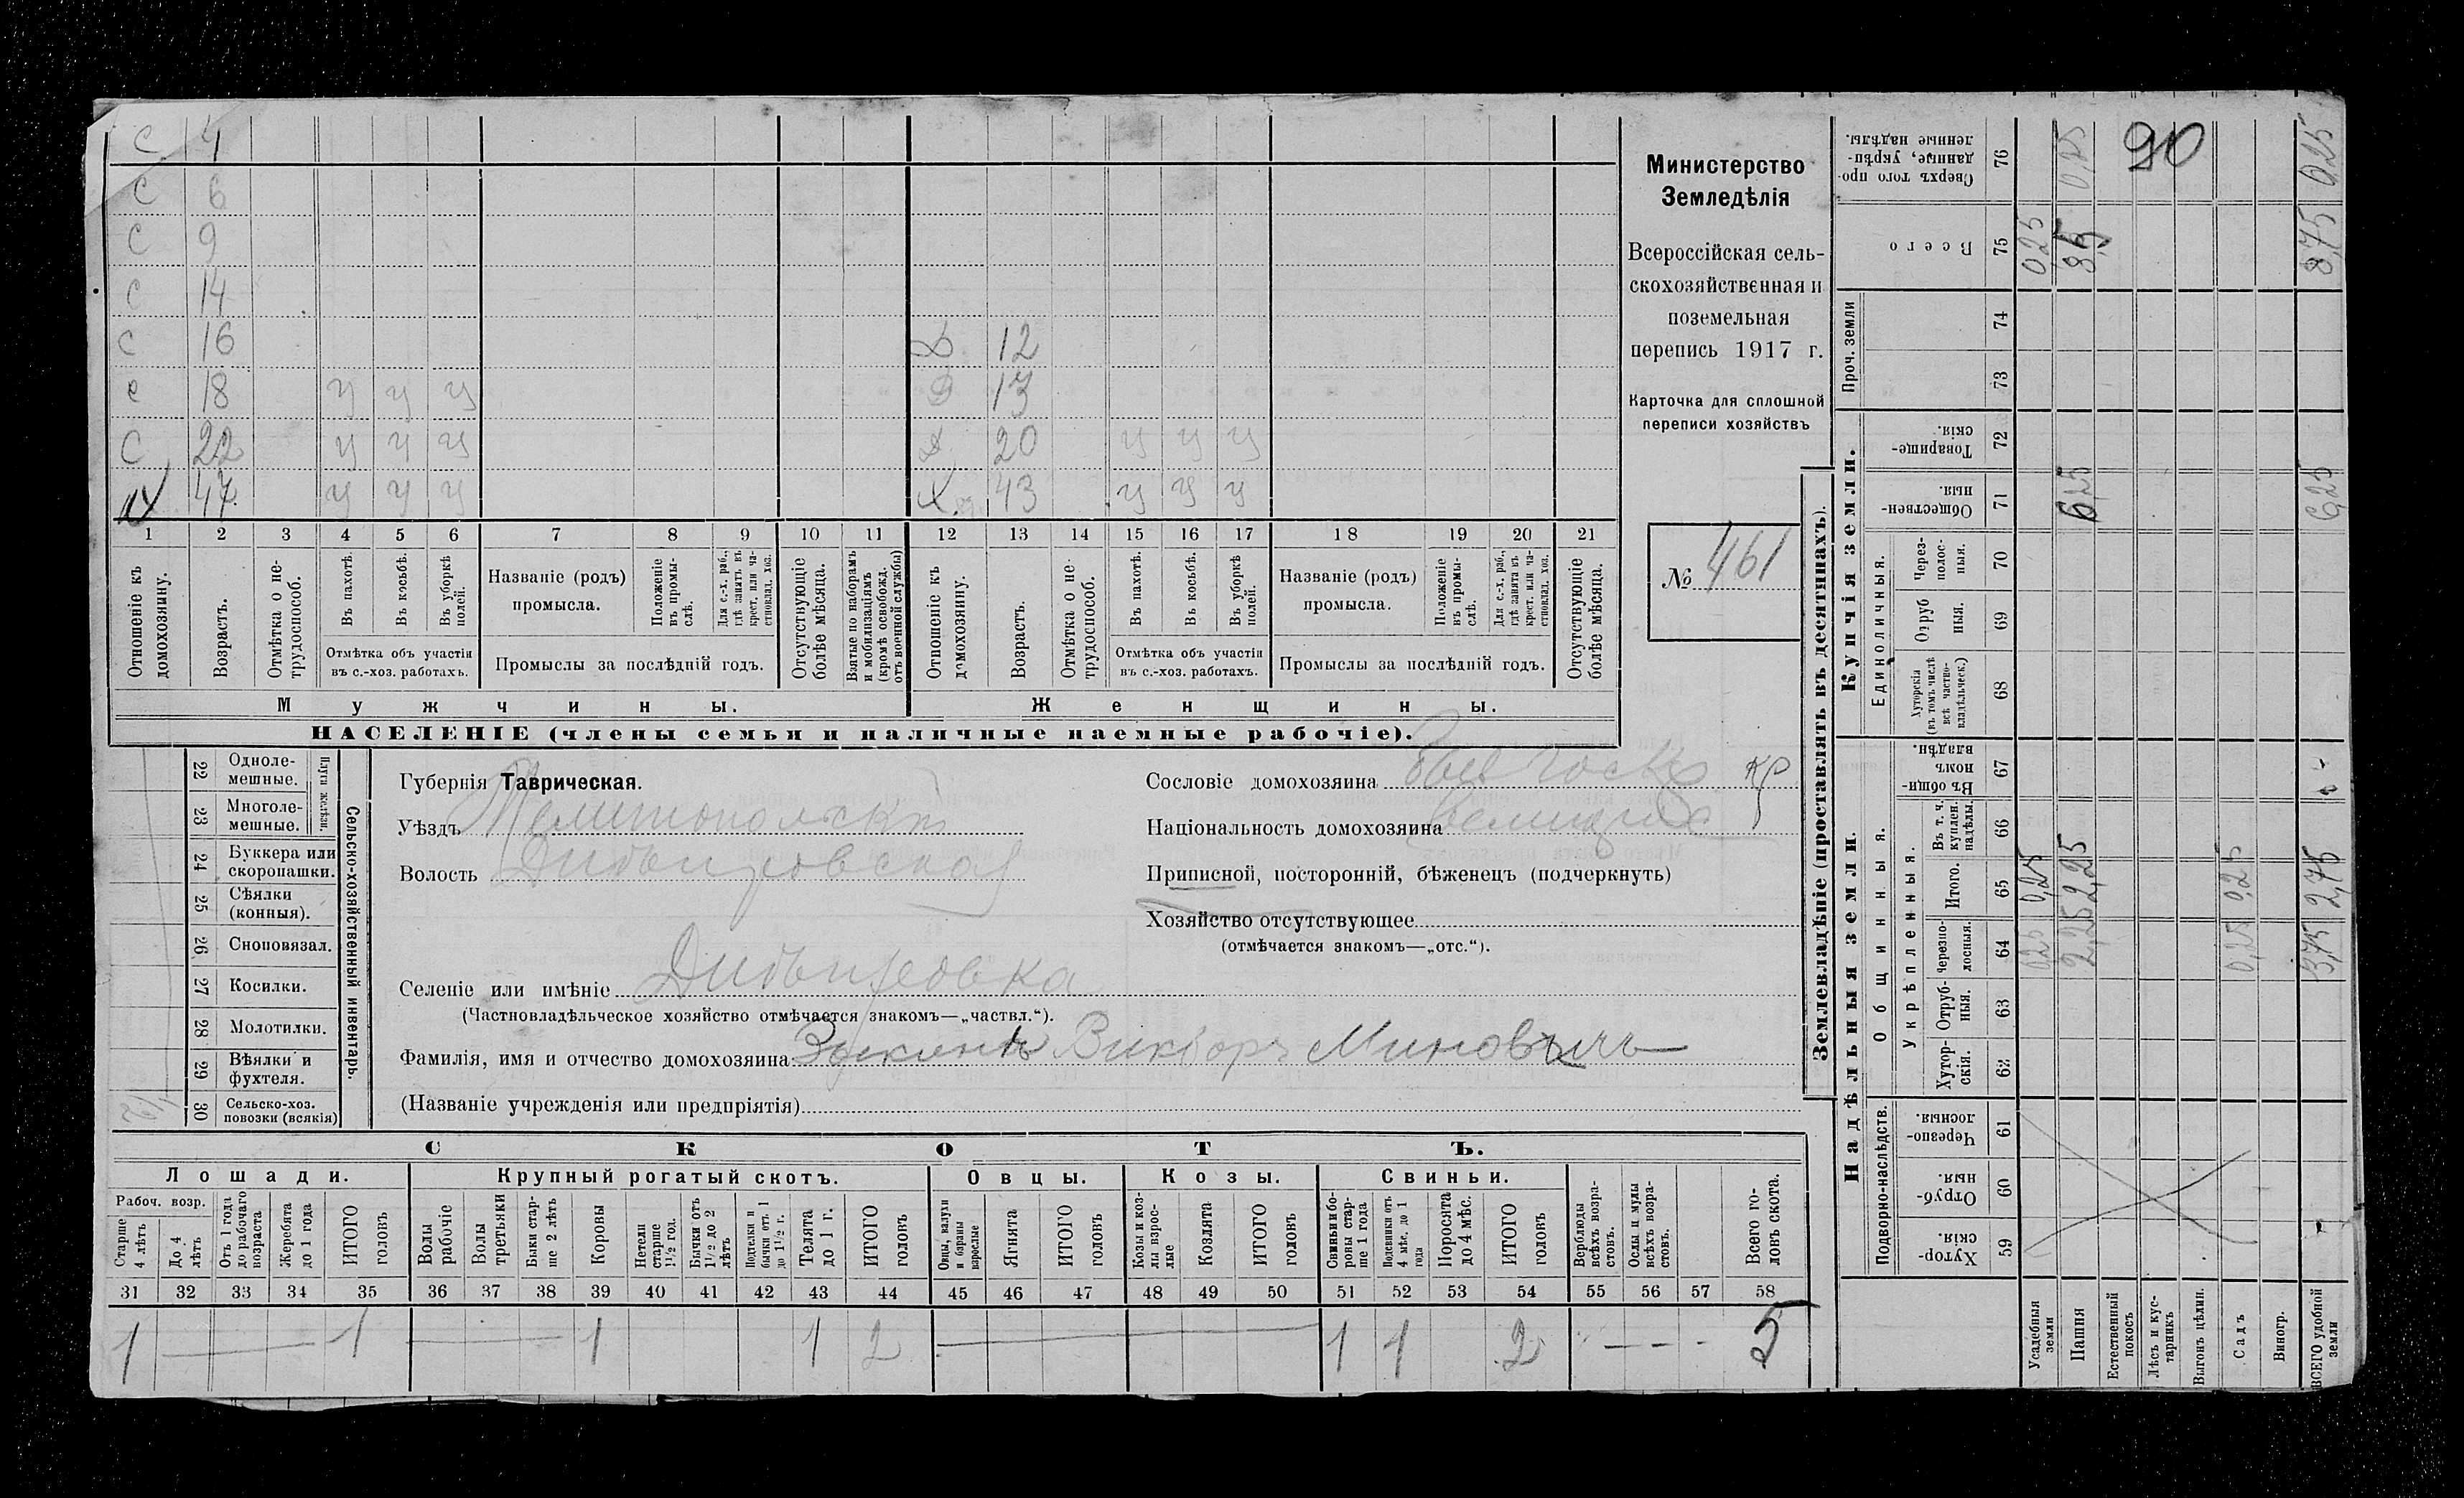 С 4
С 6
С 9
С 14
С 16 12
С 18 ч ч ч 13
С 22 ч ч ч 20 ч ч ч
47 ч ч ч 43 ч ч ч
1 2 3 4 5 6 7 8 9 10 11 12 13 14 15 16 17 18 19 20 21
Отношеніе къ домохозяину.
Возрастъ.
Отмѣтка о не-трудоспособ.
Въ пахотѣ.
Въ косьбѣ.
Въ уборкѣ полей.
Отмѣтка объ участіи въ с.-хоз. работахъ.
Названіе (родъ) промысла.
Положеніе въ промы-слѣ.
Для с.-х. раб., гдѣ занятъ въ крест. или ча-стновлад. хоз.
Промыслы за послѣдній годъ.
Отсутствующіе болѣе мѣсяца.
Взятые по наборамъ и мобилизаціямъ (кромѣ освобожд. отъ военной службы)
Отношеніе къ домохозяину.
Возрастъ.
Отмѣтка о не-трудоспособ.
Въ пахотѣ.
Въ косьбѣ.
Въ уборкѣ полей.
Отмѣтка объ участіи въ с.-хоз. работахъ.
Названіе (родъ) промысла.
Положеніе въ промы-слѣ.
Для с.-х. раб., гдѣ занята въ крест. или ча-стновлад. хоз.
Промыслы за послѣдній годъ.
Отсутствующіе болѣе мѣсяца.
Мужчины. Женщины.
НАСЕЛЕНІЕ (члены семьи и наличные наемные рабочіе).
Министерство
Земледѣлія
Всероссійская сель-
скохозяйственная и
поземельная
перепись 1917 г.
Карточка для сплошной
переписи хозяйствъ
№ 461
22 Одноле-мешные.
23 Многоле-мешные.
Плуги желѣзн.
24 Буккера или скоропашки.
25 Сѣялки (конныя).
26 Сноповязал.
27 Косилки.
28 Молотилки.
29 Вѣялки и фухтеля.
30 Сельско-хоз. повозки (всякія)
Сельско-хозяйственный инвентарь.
Губернія Таврическая.
Уѣздъ Мелитопольскій
Волость
Сословіе домохозяина кр
Національность домохозяина
Приписной, посторонній, бѣженецъ (подчеркнуть)
Хозяйство отсутствующее
(отмѣчается знакомъ—„отс.“).
Селеніе или имѣніе
(Частновладѣльческое хозяйство отмѣчается знакомъ—„частвл.“).
Фамилія, имя и отчество домохозяина Викторъ Миновичъ
(Названіе учрежденія или предпріятія)
СКОТЪ.
Лошади. Крупный рогатый скотъ. Овцы. Козы. Свиньи.
Рабоч. возр.
Старше 4 лѣтъ
До 4 лѣтъ
Отъ 1 года до рабочаго возраста
Жеребята до 1 года
ИТОГО головъ
Волы рабочіе
Волы третьяки
Быки стар-ше 2 лѣтъ
Коровы
Нетели старше 1½ год.
Бычки отъ 1½ до 2 лѣтъ
Подтелки и бычки отъ 1 до 1½ г.
Телята до 1 г.
ИТОГО головъ
Овцы, валухи и бараны взрослые
Ягнята
ИТОГО головъ
Козы и коз-лы взрос-лые
Козлята
ИТОГО головъ
Свиньи и бо-ровы стар-ше 1 года
Подсвинки отъ 4 мѣс. до 1 года
Поросята до 4 мѣс.
ИТОГО головъ
Верблюды всѣхъ возра-стовъ.
Ослы и мулы всѣхъ возра-стовъ.
Всего го-ловъ скота.
31 32 33 34 35 36 37 38 39 40 41 42 43 44 45 46 47 48 49 50 51 52 53 54 55 56 57 58
1 1 1 1 2 1 1 2 5
Землевладѣніе (проставлять въ десятинахъ).
90
Сверхъ того про-данные, укрѣп-ленные надѣлы. 76 0,25 0,25
Всего 75 0,25 8,5 8,75
Проч. земли 74 73
Купчія земли.
Товарище-скія. 72
Обществен-ныя. 71 6,25 6,25
Единоличныя.
Через-полос-ныя. 70
Отруб-ныя. 69
Хуторскія (въ томъ числѣ всѣ частно-владѣльческ.) 68
Надѣльныя земли.
Общинныя.
Въ общи-номъ владѣн. 67
Укрѣпленныя.
Въ т. ч. куплен. надѣлы. 66
Итого. 65 0,25 2,25 0,25 2,75
Черезпо-лосныя. 64 0,25 2,25 0,25
Отруб-ныя. 63
Хутор-скія. 62
Подворно-наслѣдств.
Черезпо-лосныя. 61
Отруб-ныя. 60
Хутор-скія. 59
Усадебныя земли
Пашня
Естественный покосъ
Лѣсъ и кус-тарникъ
Выгонъ цѣлин.
Садъ
Виногр.
ВСЕГО удобной земли